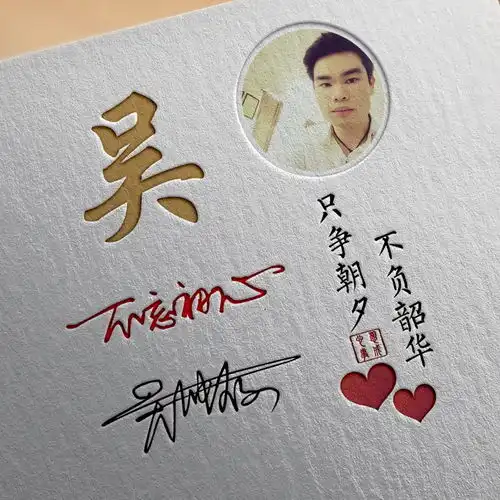 吴
不忘初心
只争朝夕
不负韶华